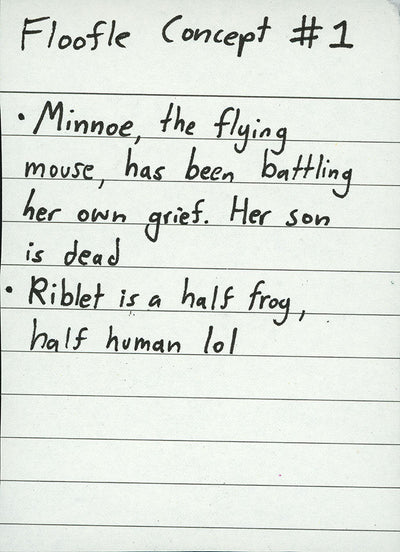 Floofle Concept #1
• Minnoe, the flying
mouse, has been battling
her own grief. Her son
is dead
• Riblet is a half frog,
half human lol